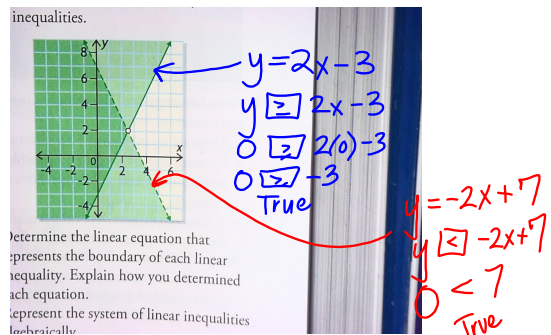 inequalities.
y
8
6
4
2
x
-4 -2 0 2 4 6
-2
-4
y=2x-3
y ≥ 2x-3
0 ≥ 2(0)-3
0 ≥ -3
True
y=-2x+7
y < -2x+7
0 < 7
True
Determine the linear equation that
represents the boundary of each linear
inequality. Explain how you determined
each equation.
Represent the system of linear inequalities
algebraically